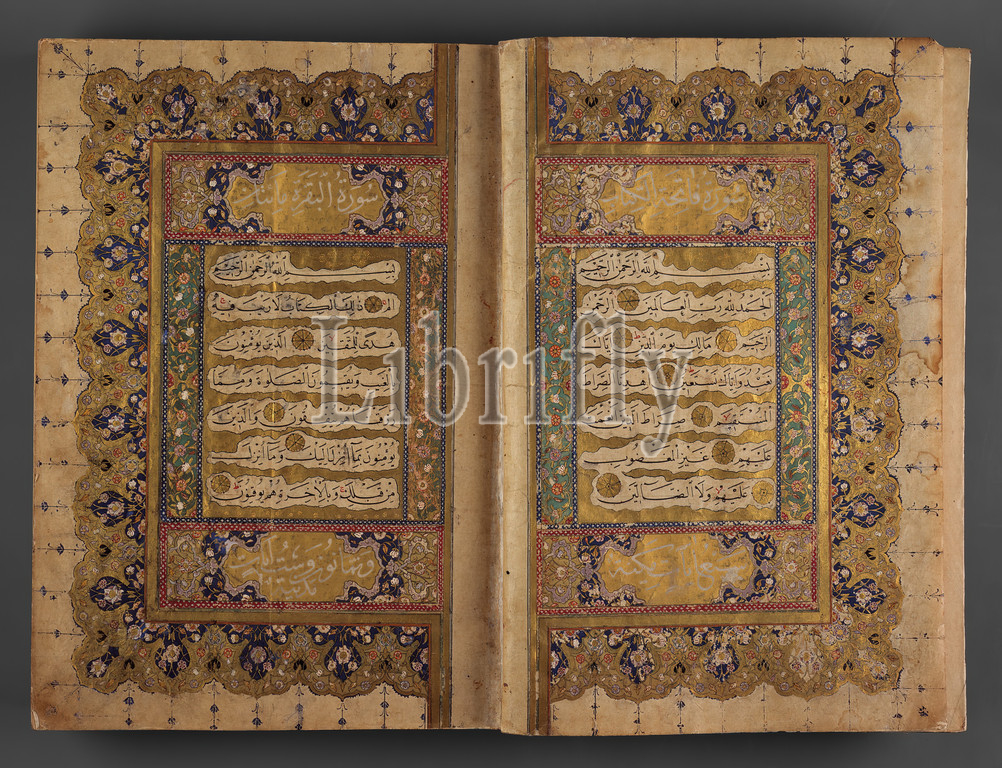 سورة فاتحة الكتاب
بسم الله الرحمن الرحيم
الحمد لله رب العالمين الرحمن
الرحيم مالك يوم الدين اياك
نعبد واياك نستعين اهدنا الصراط
المستقيم صراط الذين انعمت
عليهم غير المغضوب
عليهم ولا الضالين
سبع آيات مكية
سورة البقرة مائتان
بسم الله الرحمن الرحيم
الم ذلك الكتاب لا ريب فيه
هدى للمتقين الذين يؤمنون
بالغيب ويقيمون الصلوة ومما
رزقناهم ينفقون والذين
يؤمنون بما انزل اليك وما انزل
من قبلك وبالاخرة هم يوقنون
وثمانون وست آيات
مدنية
Librifly